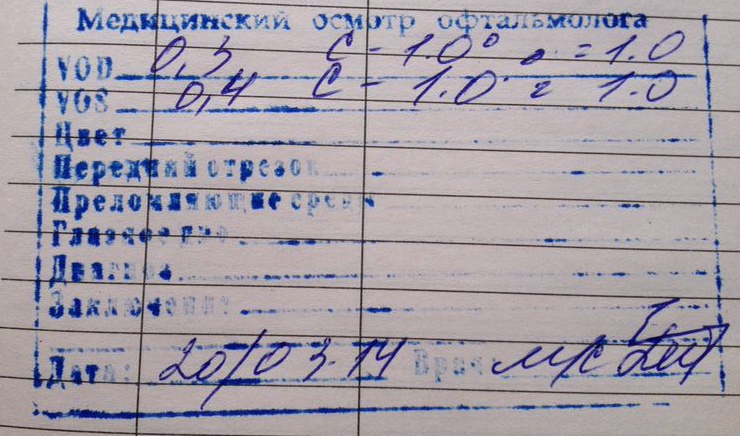 Медицинский осмотр офтальмолога
VOD 0,3 с - 1.0 = 1.0
VOS 0,4 с - 1.0 = 1.0
Цвет
Передний отрезок
Преломляющие среды
Глазное дно
Диагноз
Заключение
Дата: 20/03.14 Врач: м/с